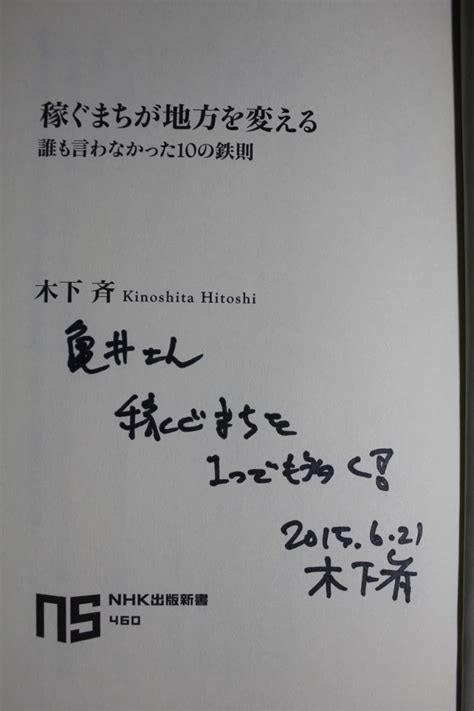 稼ぐまちが地方を変える
誰も言わなかった10の鉄則
木下 斉 Kinoshita Hitoshi
亀井さん
稼ぐまちを
1つでも多く!
2015.6.21
木下斉
ns NHK出版新書
460